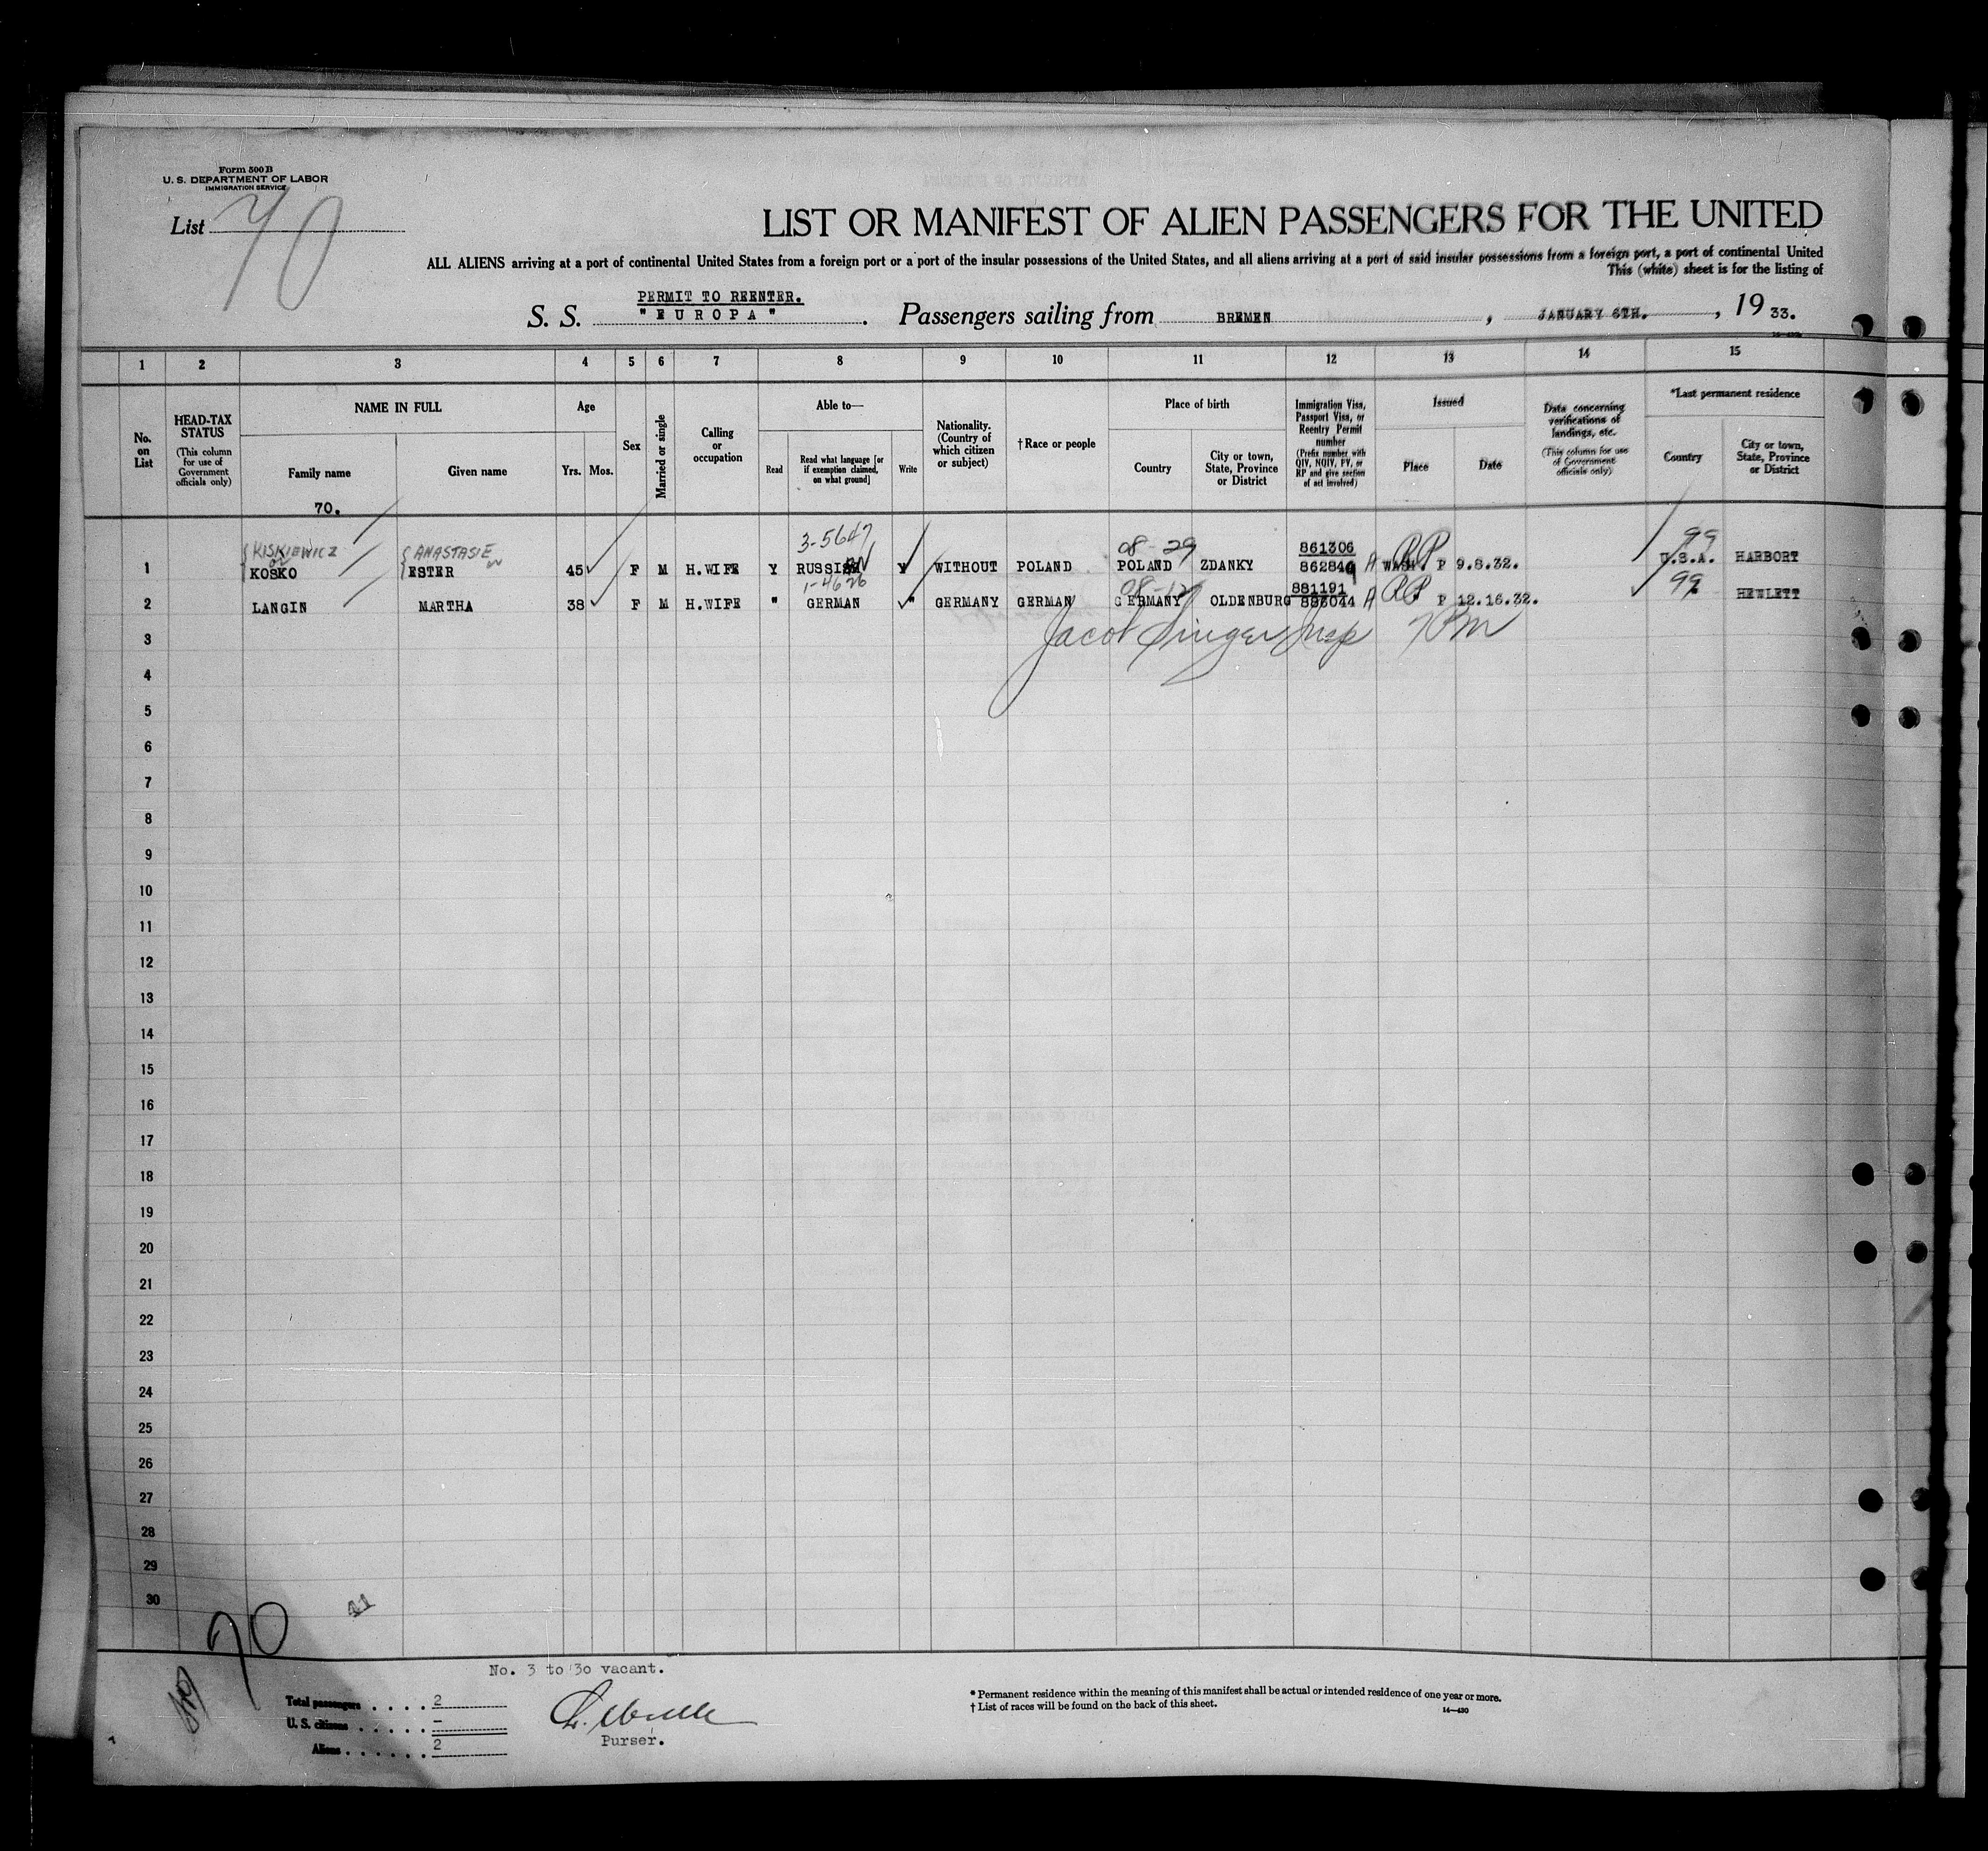 Form 500 B
U. S. DEPARTMENT OF LABOR
IMMIGRATION SERVICE
List 70
LIST OR MANIFEST OF ALIEN PASSENGERS FOR THE UNITED
ALL ALIENS arriving at a port of continental United States from a foreign port or a port of the insular possessions of the United States, and all aliens arriving at a port of said insular possessions from a foreign port, a port of continental United
This (white) sheet is for the listing of
PERMIT TO REENTER.
S. S. "EUROPA". Passengers sailing from BREMEN, JANUARY 6TH., 19 33.
1 2 3 4 5 6 7 8 9 10 11 12 13 14 15
No. on List
HEAD-TAX STATUS (This column for use of Government officials only)
NAME IN FULL
Family name
Given name
Age
Yrs. Mos.
Sex
Married or single
Calling or occupation
Able to—
Read
Read what language [or if exemption claimed, on what ground]
Write
Nationality. (Country of which citizen or subject)
† Race or people
Place of birth
Country
City or town, State, Province or District
Immigration Visa, Passport Visa, or Reentry Permit number (Prefix number with QIV, NQIV, PV, or RP and give section of act involved)
Issued
Place
Date
Data concerning verifications of landings, etc. (This column for use of Government officials only)
*Last permanent residence
Country
City or town, State, Province or District
70.
3-5647
KISKIEWICZ ANASTASIE 08-29 861306 RP 99
or or
1 KOSKO ESTER 45 F M H.WIFE Y RUSSIAN Y WITHOUT POLAND POLAND ZDANKY 862849 A WASH. P 9.8.32. U.S.A. HARBORT
1-4626 08-12 881191 RP 99
2 LANGIN MARTHA 38 F M H.WIFE " GERMAN " GERMANY GERMAN GERMANY OLDENBURG 883044 A P 12.16.32. " HEWLETT
3 Jacob Singer Insp
4
5
6
7
8
9
10
11
12
13
14
15
16
17
18
19
20
21
22
23
24
25
26
27
28
29
30
70
No. 3 to 30 vacant.
Total passengers . . . . 2
U. S. citizens . . . . . –
Aliens . . . . . . 2
Purser.
* Permanent residence within the meaning of this manifest shall be actual or intended residence of one year or more.
† List of races will be found on the back of this sheet.
14—430